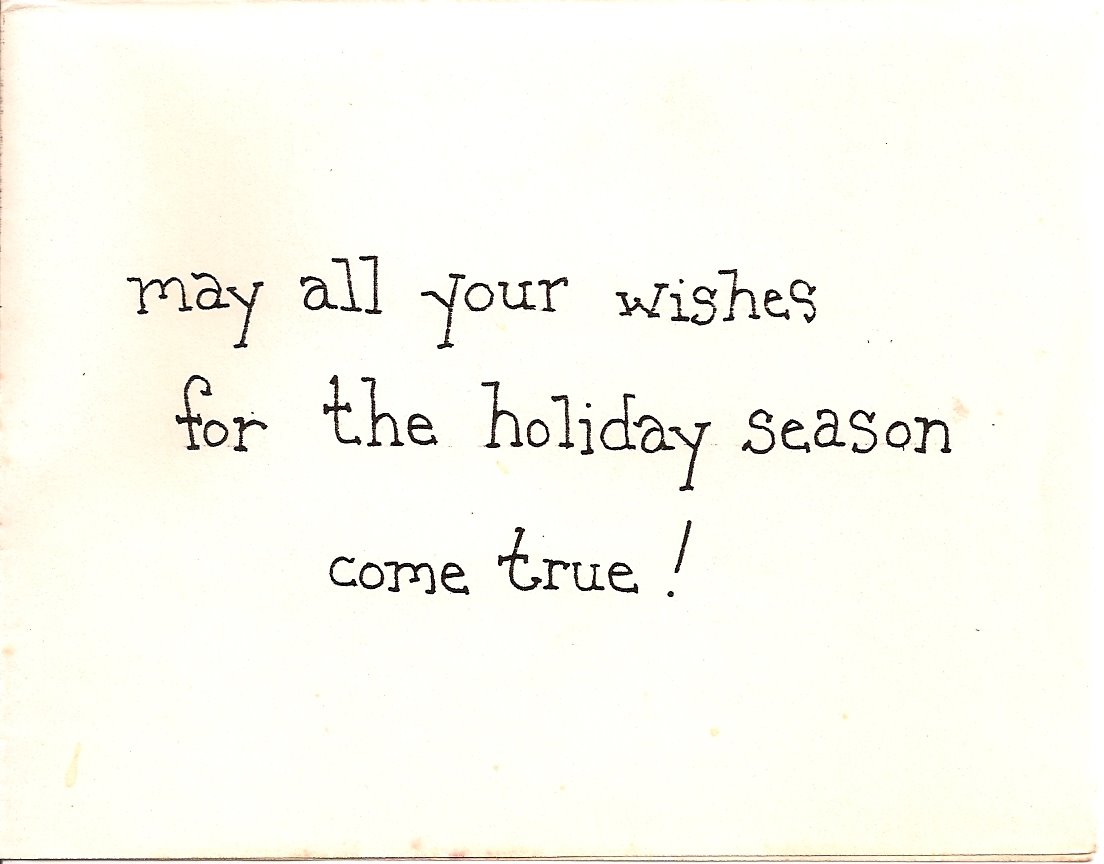 may all your wishes
for the holiday season
come true!